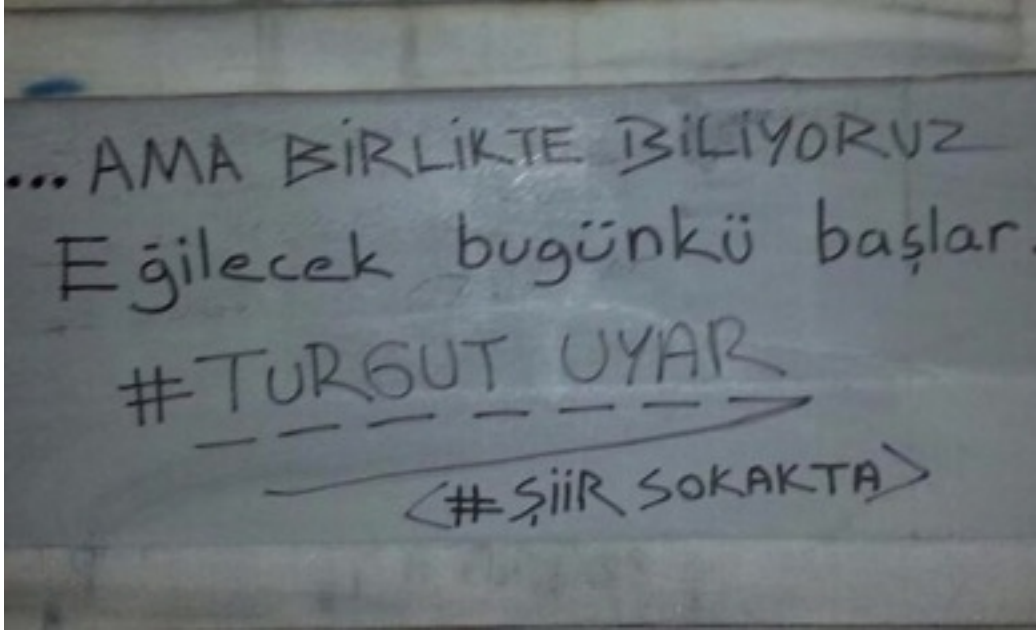 ...AMA BİRLİKTE BİLİYORUZ
Eğilecek bugünkü başlar.
#TURGUT UYAR
<#ŞİİR SOKAKTA>